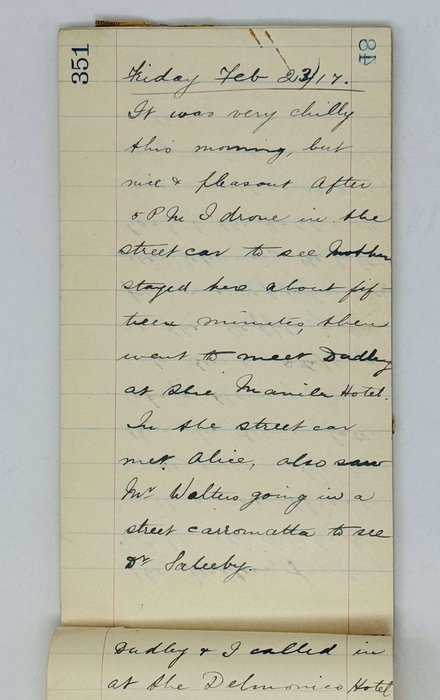 351
84
Friday Feb 23/17.
It was very chilly
this morning, but
nice & pleasant After
5 P M I drove in the
street car to see Mother
stayed here about fif-
teen minutes, then
went to meet Dadley
at the Manila Hotel.
In the street car
met Alice, also saw
Mr Walters going in a
street carromatta to see
Dr Saleeby.
Dadley & I called in
at the Delmonico Hotel